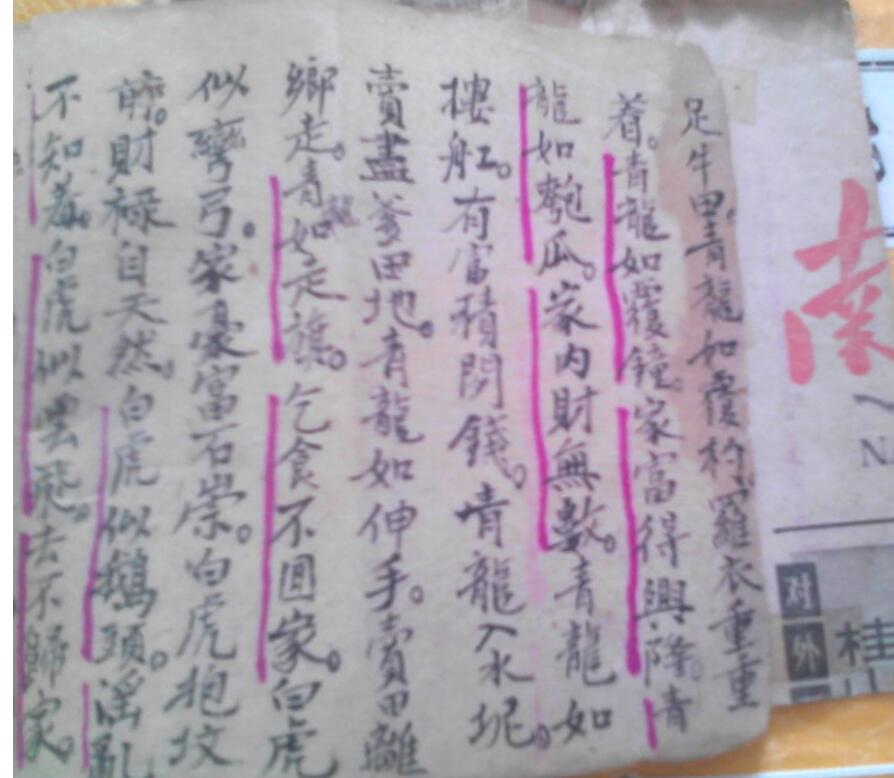 足牛田。青龍如覆杓。羅衣重重
着。青龍如覆鐘。家富得興降。青
龍如匏瓜。家内財無數。青龍如
摟舡。有富積閉錢。青龍入水坭。
賣盡爹田地。青龍如伸手。賣田離
鄉走。青龍如走旗。乞食不回家。白虎
似彎弓。家豪富石崇。白虎抱坟
前。財禄自天然。白虎似鵝頭。淫亂
不知羞。白虎似雲飛。去不歸家。
南
对
外
桂